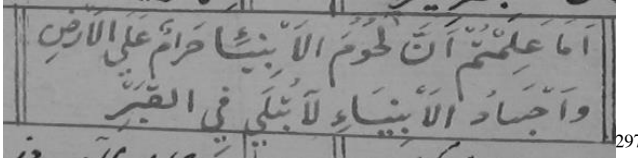 اَمَا عَلِمْتُمْ اَنَّ لُحُوْمَ الْاَنْبِيَآءِ حَرَامٌ عَلَي الْاَرْضِ
وَاَجْسَادُ الْاَنْبِيَاءِ لَا تُبْلَي فِي الْقَبْرِ
297